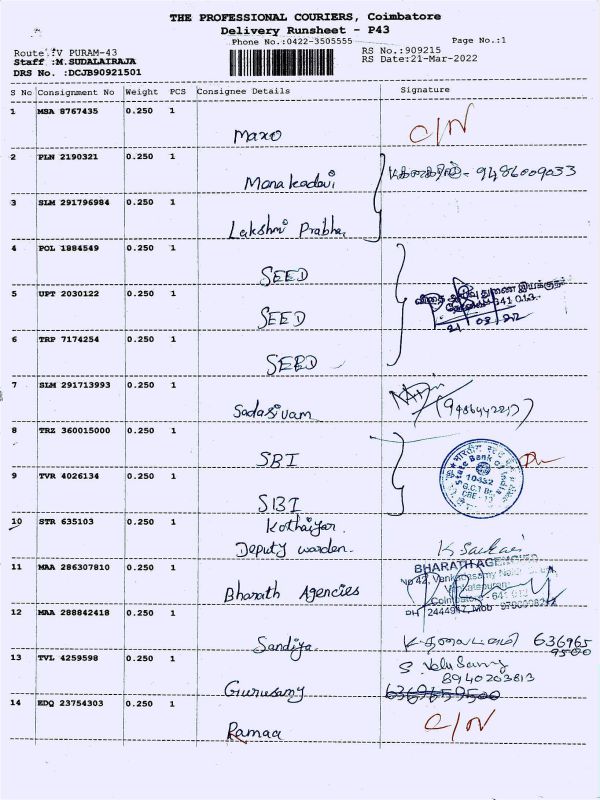 THE PROFESSIONAL COURIERS, Coimbatore
Delivery Runsheet - P43
Phone No.:0422-3505555
Page No.:1
Route :V PURAM-43
RS No.:909215
Staff :M.SUDALAIRAJA
RS Date:21-Mar-2022
DRS No. :DCJB90921501
S No Consignment No Weight PCS Consignee Details Signature
1 MSA 8767435 0.250 1
Maxo C/N
2 PLN 2190321 0.250 1
9486009033
3 SLM 291796984 0.250 1
Lakshmi Prabha
4 POL 1884549 0.250 1
SEED
5 UPT 2030122 0.250 1
SEED
641 013
21 03 22
6 TRP 7174254 0.250 1
SEED
7 SLM 291713993 0.250 1
Sadasivam
8 TRZ 360015000 0.250 1
SBI
State Bank of India
10432
G.C.T Br.
CBE - 13
9 TVR 4026134 0.250 1
SBI
10 STR 635103 0.250 1
Kothaiyar
Deputy warden.
11 MAA 286307810 0.250 1
BHARATH AGENCIES
Bharath Agencies
12 MAA 288842418 0.250 1
Sandiya 636965
9500
13 TVL 4259598 0.250 1
8940203613
Gurusamy 6369659500
14 EDQ 23754303 0.250 1
Ramaa C/N